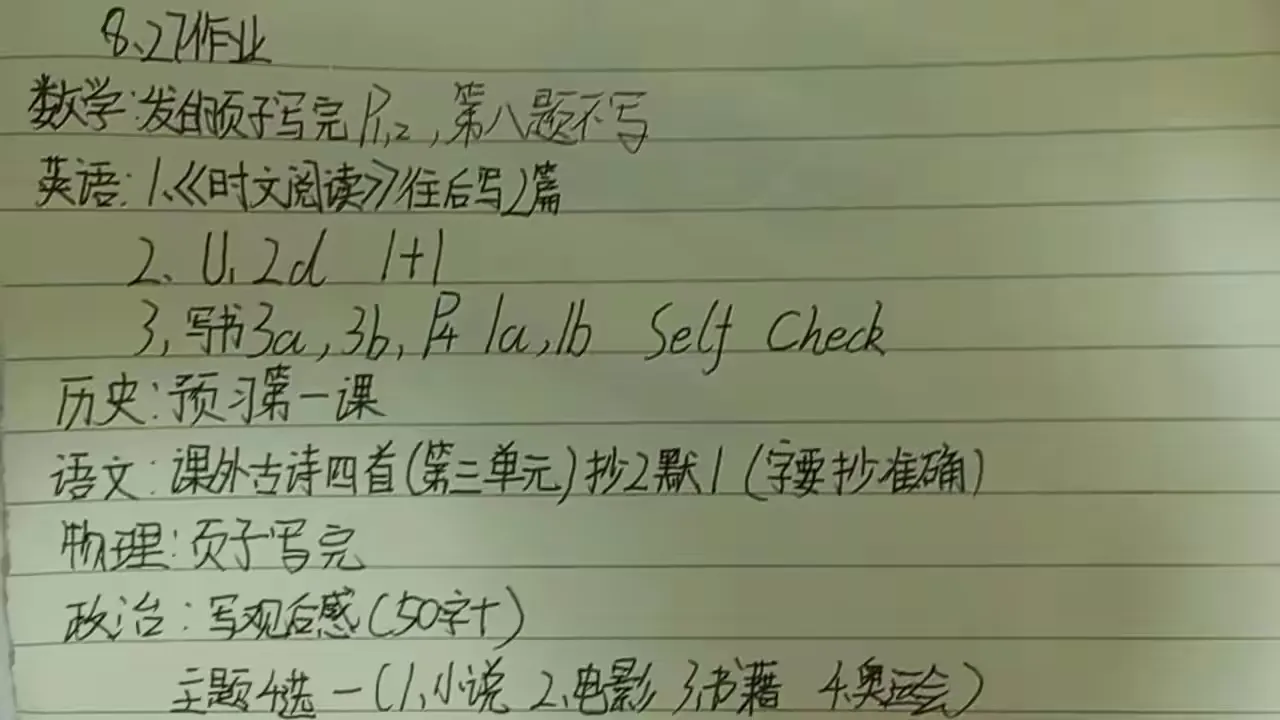 8.27作业
数学:发的页子写完P1,2,第八题不写
英语:1.《时文阅读》往后写2篇
2. U1 2d 1+1
3,写书3a,3b,P4 1a,1b Self Check
历史:预习第一课
语文:课外古诗四首(第三单元)抄2默1(字要抄准确)
物理:页子写完
政治:写观后感(50字+)
主题4选一(1.小说 2.电影 3.书籍 4.奥运会)